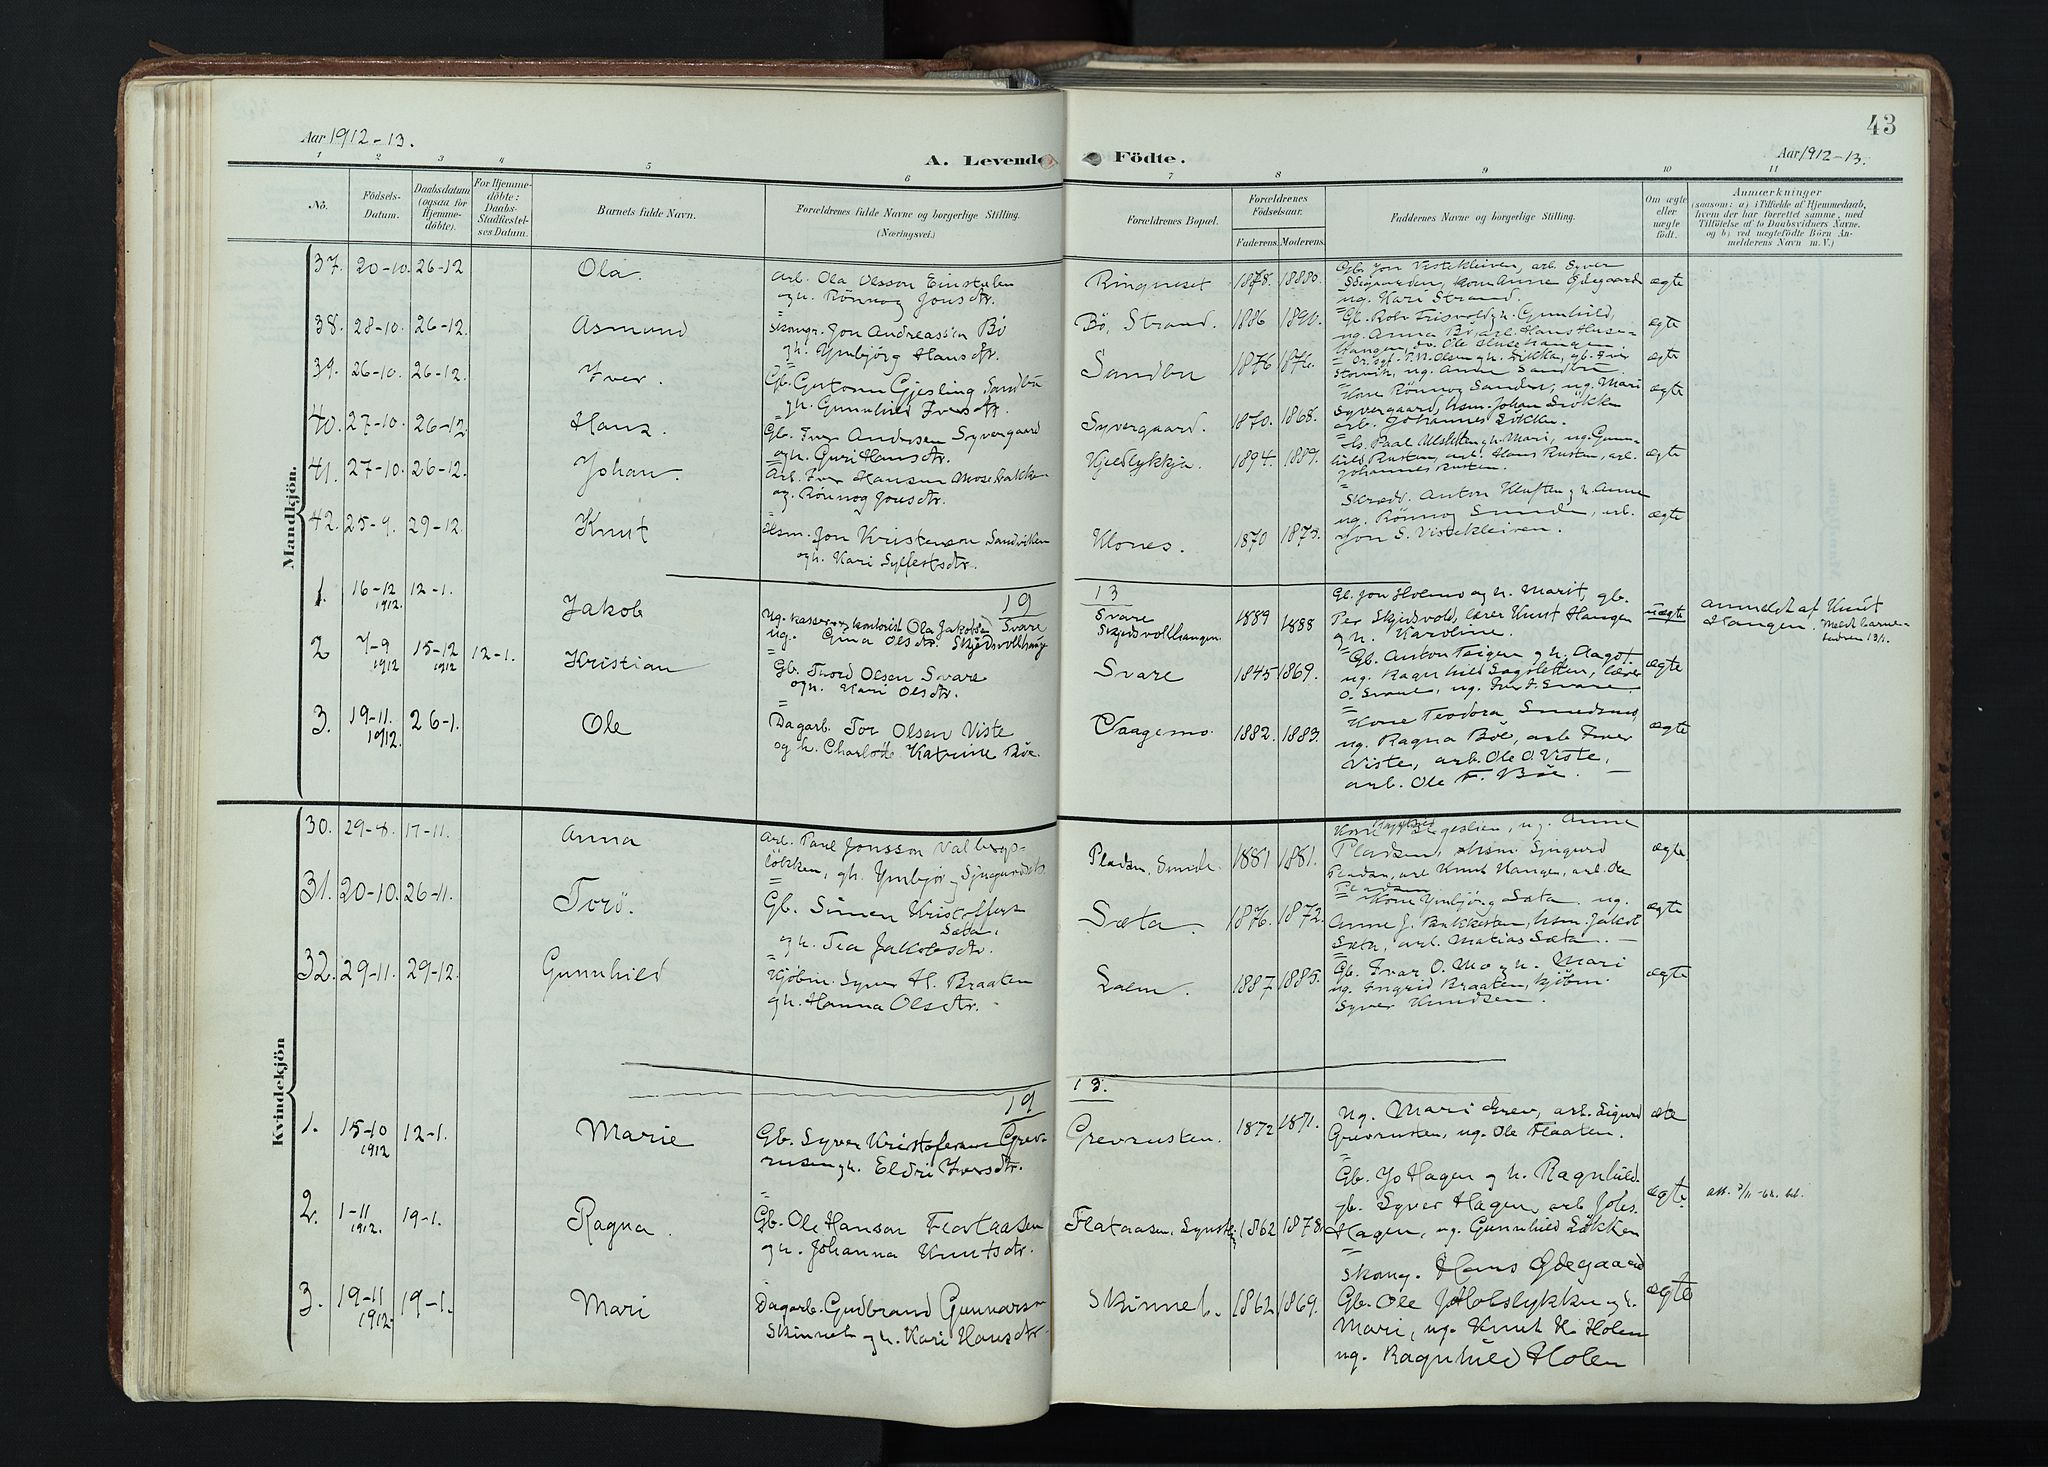 43
Aar 1912-13.
A. Levende Födte.
Aar 1912-13.
1 2 3 4 5 6 7 8 9 10 11
No. Födsels-Datum. Daabsdatum (ogsaa for Hjemmedöbte). For Hjemmedöbte: Daabs-Stadfæstelses Datum. Barnets fulde Navn. Forældrenes fulde Navne og borgerlige Stilling. (Næringsvei.) Forældrenes Bopæl. Forældrenes Födselsaar. Faderens. Moderens. Faddernes Navne og borgerlige Stilling. Om ægte eller uægte födt. Anmærkninger (saasom: a) i Tilfælde af Hjemmedaab, hvem der har forrettet samme, med Tilföielse af to Daabsvidners Navne. og b) ved uægtefödte Börn Anmelderens Navn m. V.)
Mandkjön.
37. 20-10. 26-12 Ola. Arb. Ola Olsson Einstulen
og h. Rönnog Jonsdtr. Ringneset 1878. 1880. Gb. Jon Vistekleiven, arb. Syver
kone Anne Ødegaard
ug. Kari Strand. ægte
38. 28-10. 26-12. Asmund Skomgr. Jon Andreassön Bö
og h. Ymbjörg Hansdtr. Bö, Strand. 1886 1890. Gb. Rolv Frisvold g h. Gunhild,
ug. Anna Bö, arb. Hans Huse-
hangen, Ole Husehangen. ægte
39. 26-10. 26-12. Iver. Gb. Guttorm Gjesling Sandbu
g h. Gunnhild Iversdtr. Sandbu 1876 1876. P. N. Olsen g h. Rikka, gb. Iver
Storvik, ug. Anne Sandbu. ægte
40. 27-10. 26-12 Hans. Gb. Iver Andersen Syvergaard
og h. Guri Hansdtr. Syvergaard. 1870. 1868. Kone Rönnog Sanden, ug. Mari
Syvergaard, hsm. Johan Lökken
arb. Johannes Lökken. ægte
41. 27-10. 26-12. Johan. Arb. Iver Hansen Mosebakken
og. Rönnog Jonsdtr. Kjedlykkja. 1894. 1889. Hs. Paal Uleklev g h. Mari, ug. Gunn-
hild Rusten, arb. Hans Rusten, arb.
Johannes Rusten. ægte
42. 25-9. 29-12. Knut Hsm. Jon Kristenson Sandviken
og h. Kari Sylfestsdtr. Klones. 1870 1873. Skrædd. Anton Kluften g h. Anne
ug. Rönnog Sunde, arb.
Jon S. Vistekleiven. ægte
19 13
1. 16-12 1912. 12-1. Jakob Ug. kasserer, kontorist Ola Jakobsen Svare
ug. Gina Olsdtr. Skjedsvollhaugen Svare
Skjedsvollhaugen. 1889 1888 Gb. Jon Holemo og h. Marit, gb.
Per Skjedsvold, lærer Knut Hangen
g h. Karoline. uægte anmeldt af Knut
Hangen. Meldt barne-
2 7-9 1912 15-12 1912 12-1. Kristian Gb. Tord Olsen Svare
og h. Kari Olsdtr. Svare 1845 1869. Gb. Anton Teigen g h. Aagot.
ug. Ragnhild Sagsletten, lærer
O. Svare, ug. Iver T. Svare ægte
3. 19-11. 1912. 26-1. Ole Dagarb. Tor Olsen Viste
og h. Charlotte Katrine Böe. Vaagemo. 1882. 1883 Kone Teodora Smedsmo
ug. Ragna Böe, arb. Iver
Viste, arb. Ole O. Viste,
arb. Ole F. Böe. ægte
Kvindekjön
30. 29-8. 17-11. Anna Arb. Paul Jonsson Valbergs-
lökken, g h. Ymbjör g Sjugurdsdtr. Pladsen, Sunde. 1881 1881. Kone Ragnhild, ug. Anne
Pladsen, hsm. Sjugurd
Pladsen, arb. Knut Hangen, arb. Ole
Pladsen ægte
31. 20-10. 26-11. Torö. Gb. Simen Kristoffers
Sæta,
og h. Tea Jakobsdtr. Sæta. 1876. 1872. Kone Ymbjörg Sæta. ug.
Anne J. Bakkesten, hsm. Jakob
Sæta, arb. Matias Sæta. ægte
32. 29-11. 29-12. Gunnhild Kjöbm. Syver H. Braaten
g h. Hanna Olsdtr. Lalm. 1887 1885. Gb. Ivar O. Mo g h. Mari
ug. Ingrid Braaten, kjöbm.
Syver Knudsen. ægte
19 13.
1. 15-10 1912 12-1. Marie Gb. Syver Kristofersen Grev-
rusten g h. Eldri Iversdtr. Grevrusten. 1872 1871. Ug. Mari Grev, arb. Sigurd
Grevrusten, ug. Ole Flaaten.
2. 1-11 1912. 19-1. Ragna. Gb. Ole Hanson Flataasen
og h. Johanna Knutsdtr. Flataasen. 1862 1878 Gb. Jo Hagen g h. Ragnhild
gb. Syver Hagen, arb. Johs.
Hagen, ug. Gunnhild Lökken ægte.
3. 19-11 1912. 19-1. Mari Dagarb. Gudbrand Gunnarsen
Skinneb og h. Kari Hansdtr. Skinneb. 1862 1869. Skomg. Hans Ødegaard
Gb. Ole Jobslykkn g h.
Mari, ug. Knut H. Holen
ug. Ragnhild Holen ægte